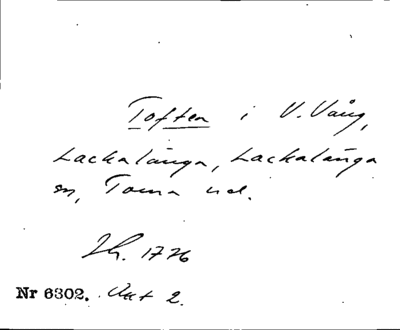 Toften i V. Vång,
Lackalänga, Lackalänga
sn, Torna hd.
Lh. 1776
Nr 6302. Akt 2.